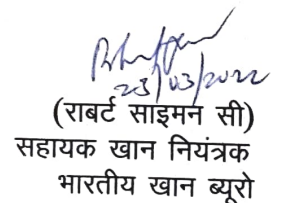 23/03/2022
(राबर्ट साइमन सी)
सहायक खान नियंत्रक
भारतीय खान ब्यूरो